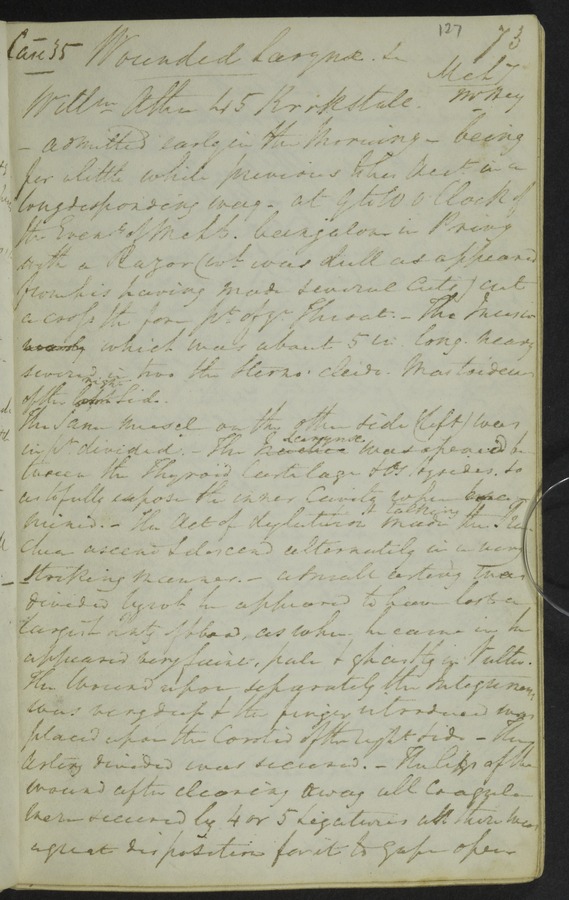 127
73
Case 35 Wounded Larynx. In
Mch 7th
Mr Hey
Willm 45 Kirkstall.
- admitted early in the Morning - being
for a little while previous to this Act in a
long desponding way - at 9 to 10 o Clock of
the Eveng of Mch 6. being alone in Privy
with a Razor (wh was dull as appeared
from his having made several Cuts) cut
across the fore pt of ye Throat. - The Incision
which was about 5 in. long. nearly
severed in two the Sterno cleido Mastoideus
of the right Side.
The same Muscle on the other side (left) was
in pt divided. - The Larynx was opened be
tween the Thyroid Cartilage & Os hyoides. so
as to fully expose the inner Cavity when
- The Act of deglutition & made the
chea ascend & descend alternately in a very
striking manner. - a small artery was
divided by wh he appeared to have lost a
large quanty of blood, as when he came in he
appeared very faint, pale & ghastly in Vultu.
The wound upon separating the Integumts
was very deep & the finger introduced was
placed upon the Carotid of the right side - The
Artery divided was secured. - The lips of the
wound after clearing away all Coagula
were secured by 4 or 5 Ligatures as there was
a great disposition for it to gape open